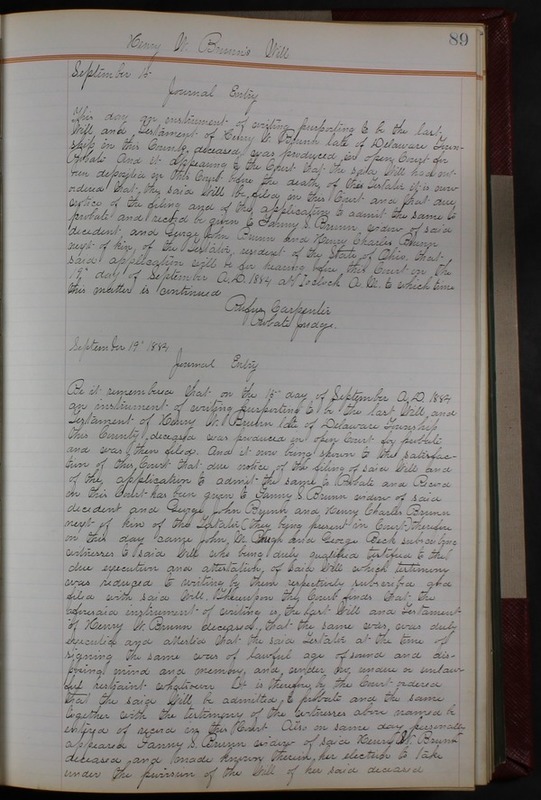 89
Henry W. Brunn's Will
September 15
Journal Entry
This day an instrument of writing purporting to be the last
Will and Testament of Henry W. Brunn late of Delaware Town-
ship in this County, deceased was produced in open Court for
Probate And it appearing to the Court that the said Will had not
been deposited in this Court before the death of the Testator it is now
ordered that the said Will be filed in this Court and that due
notice of the filing and of the application to admit the same to
probate and record be given to Fanny S. Brunn widow of said
decedent, and George John Brunn and Henry Charles Brunn
next of kin, of the Testator, resident of the State of Ohio, that
said application will be for hearing before this Court on the
19" day of September A.D. 1884 at oclock A. M. to which time
this matter is continued
Rufus Carpenter
Probate Judge.
September 19" 1884
Journal Entry
Be it remembered that on the 15" day of September A.D. 1884
an instrument of writing purporting to be the last Will and
Testament of Henry W. Brunn late of Delaware Township
this County, deceased was produced in open Court for probate
and was then filed. And it now being shown to the satisfac-
tion of this Court that due notice of the filing of said Will and
of the application to admit the same to Probate and Record
in this Court has been given to Fanny S. Brunn widow of said
decedent and George John Brunn and Henry Charles Brunn
next of kin of the Testator (they being present in Court) therefore
on this day came John M. and George Beck subscribing
witnesses to said Will who being duly qualified testified to the
due execution and attestation of said Will which testimony
was reduced to writing by them respectively subscribed and
filed with said Will. Whereupon the Court finds that the
aforesaid instrument of writing is the last Will and Testament
of Henry W. Brunn deceased, that the same was duly
executed and attested that the said Testator at the time of
signing the same was of lawful age of sound and dis-
posing mind and memory and under no undue or unlaw-
ful restraint whatsoever It is therefore by the Court ordered
that the said Will be admitted to probate and the same
together with the testimony of the witnesses above named be
entered of record in this Court Also on same day personally
appeared Fanny S. Brunn widow of said Henry W. Brunn
deceased and made known therein, her election to take
under the provision of the Will of her said deceased